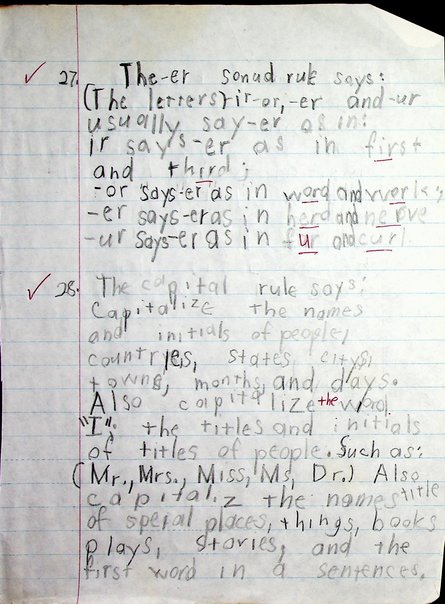 27. The-er sonud rule says:
(The letters)-ir-or,-er and-ur
usually say-er as in:
ir says-er as in first
and third;
-or says-er as in word and work;
-er says-er as in herd and nerve
-ur says-er as in fur and curl.
28. The capital rule says:
Capitalize the names
and initials of people,
countryes, states, citys,
towns, months, and days.
Also capitalize the word
"I". the titles and initials
of titles of people. Such as:
(Mr., Mrs., Miss, Ms, Dr.) Also
capitaliz the names title
of speial places, things, books
plays, stories, and the
first word in a sentences.